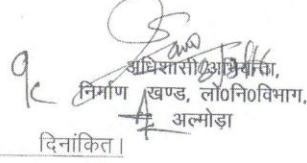 अधिशासी अभियन्ता,
निर्माण खण्ड, लो०नि०विभाग,
अल्मोड़ा
दिनांकित।